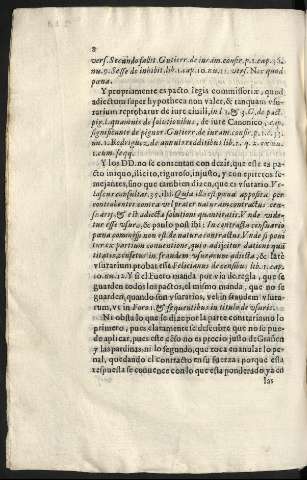 8
vers. Secundo fallit. Gutierr. de iuram. confir. p. 1. cap. 36.
nu. 9. Sesse de inhibit. lib. 1. cap. 10. nu. 11. vers. Nec quod
pœna.
Y propriamente es pacto legis commissoriæ, quod
adiectum super hypotheca non valet, & tanquam vsu-
rarium reprobatur de iure ciuili, in l. & C. de pact.
pig. l. quamuis de fulcitoribus, de iure Canonico, cap.
significante de pignor. Gutierr. de iuram. confir. p. 1. c. 53.
nu. 1. Rodriguez, de annuis redditibus lib. 2. q. 2. ex nu.
1. cum seqq.
Y los DD. no se contentan con dezir, que este es pa-
cto iniquo, illicito, riguroso, injusto, y con epitetos se-
mejantes, sino que tambien dizen, que es vsurario. Ve-
lascus consultat. 35. ibi: Quia ista est pœna apposita per
contrahentes contra vel præter naturam contractus cen-
& est adiecta solutioni quantitatis. Vnde vide-
tur esse vsura, & paulo post ibi: In contractu ex vsuario
pœna commissa non est de natura contractus. Vnde si poni-
tur ex partium conuentione, quo adijcitur dationi quan-
titatis, censetur in fraudem vsurarum adiecta, & late
vsurarium probat esse Felicianus de censibus lib. 1. cap.
10. nu. 12. Y si el Fuero manda por via de regla, que se
guarden todos los pactos, el mismo manda, que no se
guarden, quando son vsurarios, vel in fraudem vsura-
rum, vt in Foro 1. & sequentibus in titulo de vsuris.
Ni obsta lo que se dize por la parte contraria: no lo
primero, pues claramente se descubre que no se pue-
de aplicar, pues este caso no es precio justo de Grañen
y las pardinas, ni lo segundo, que toca en anular lo pe-
nal, quedando el contracto en su fuerza: porque esta
respuesta se conuence con lo que està ponderado, ya en
las